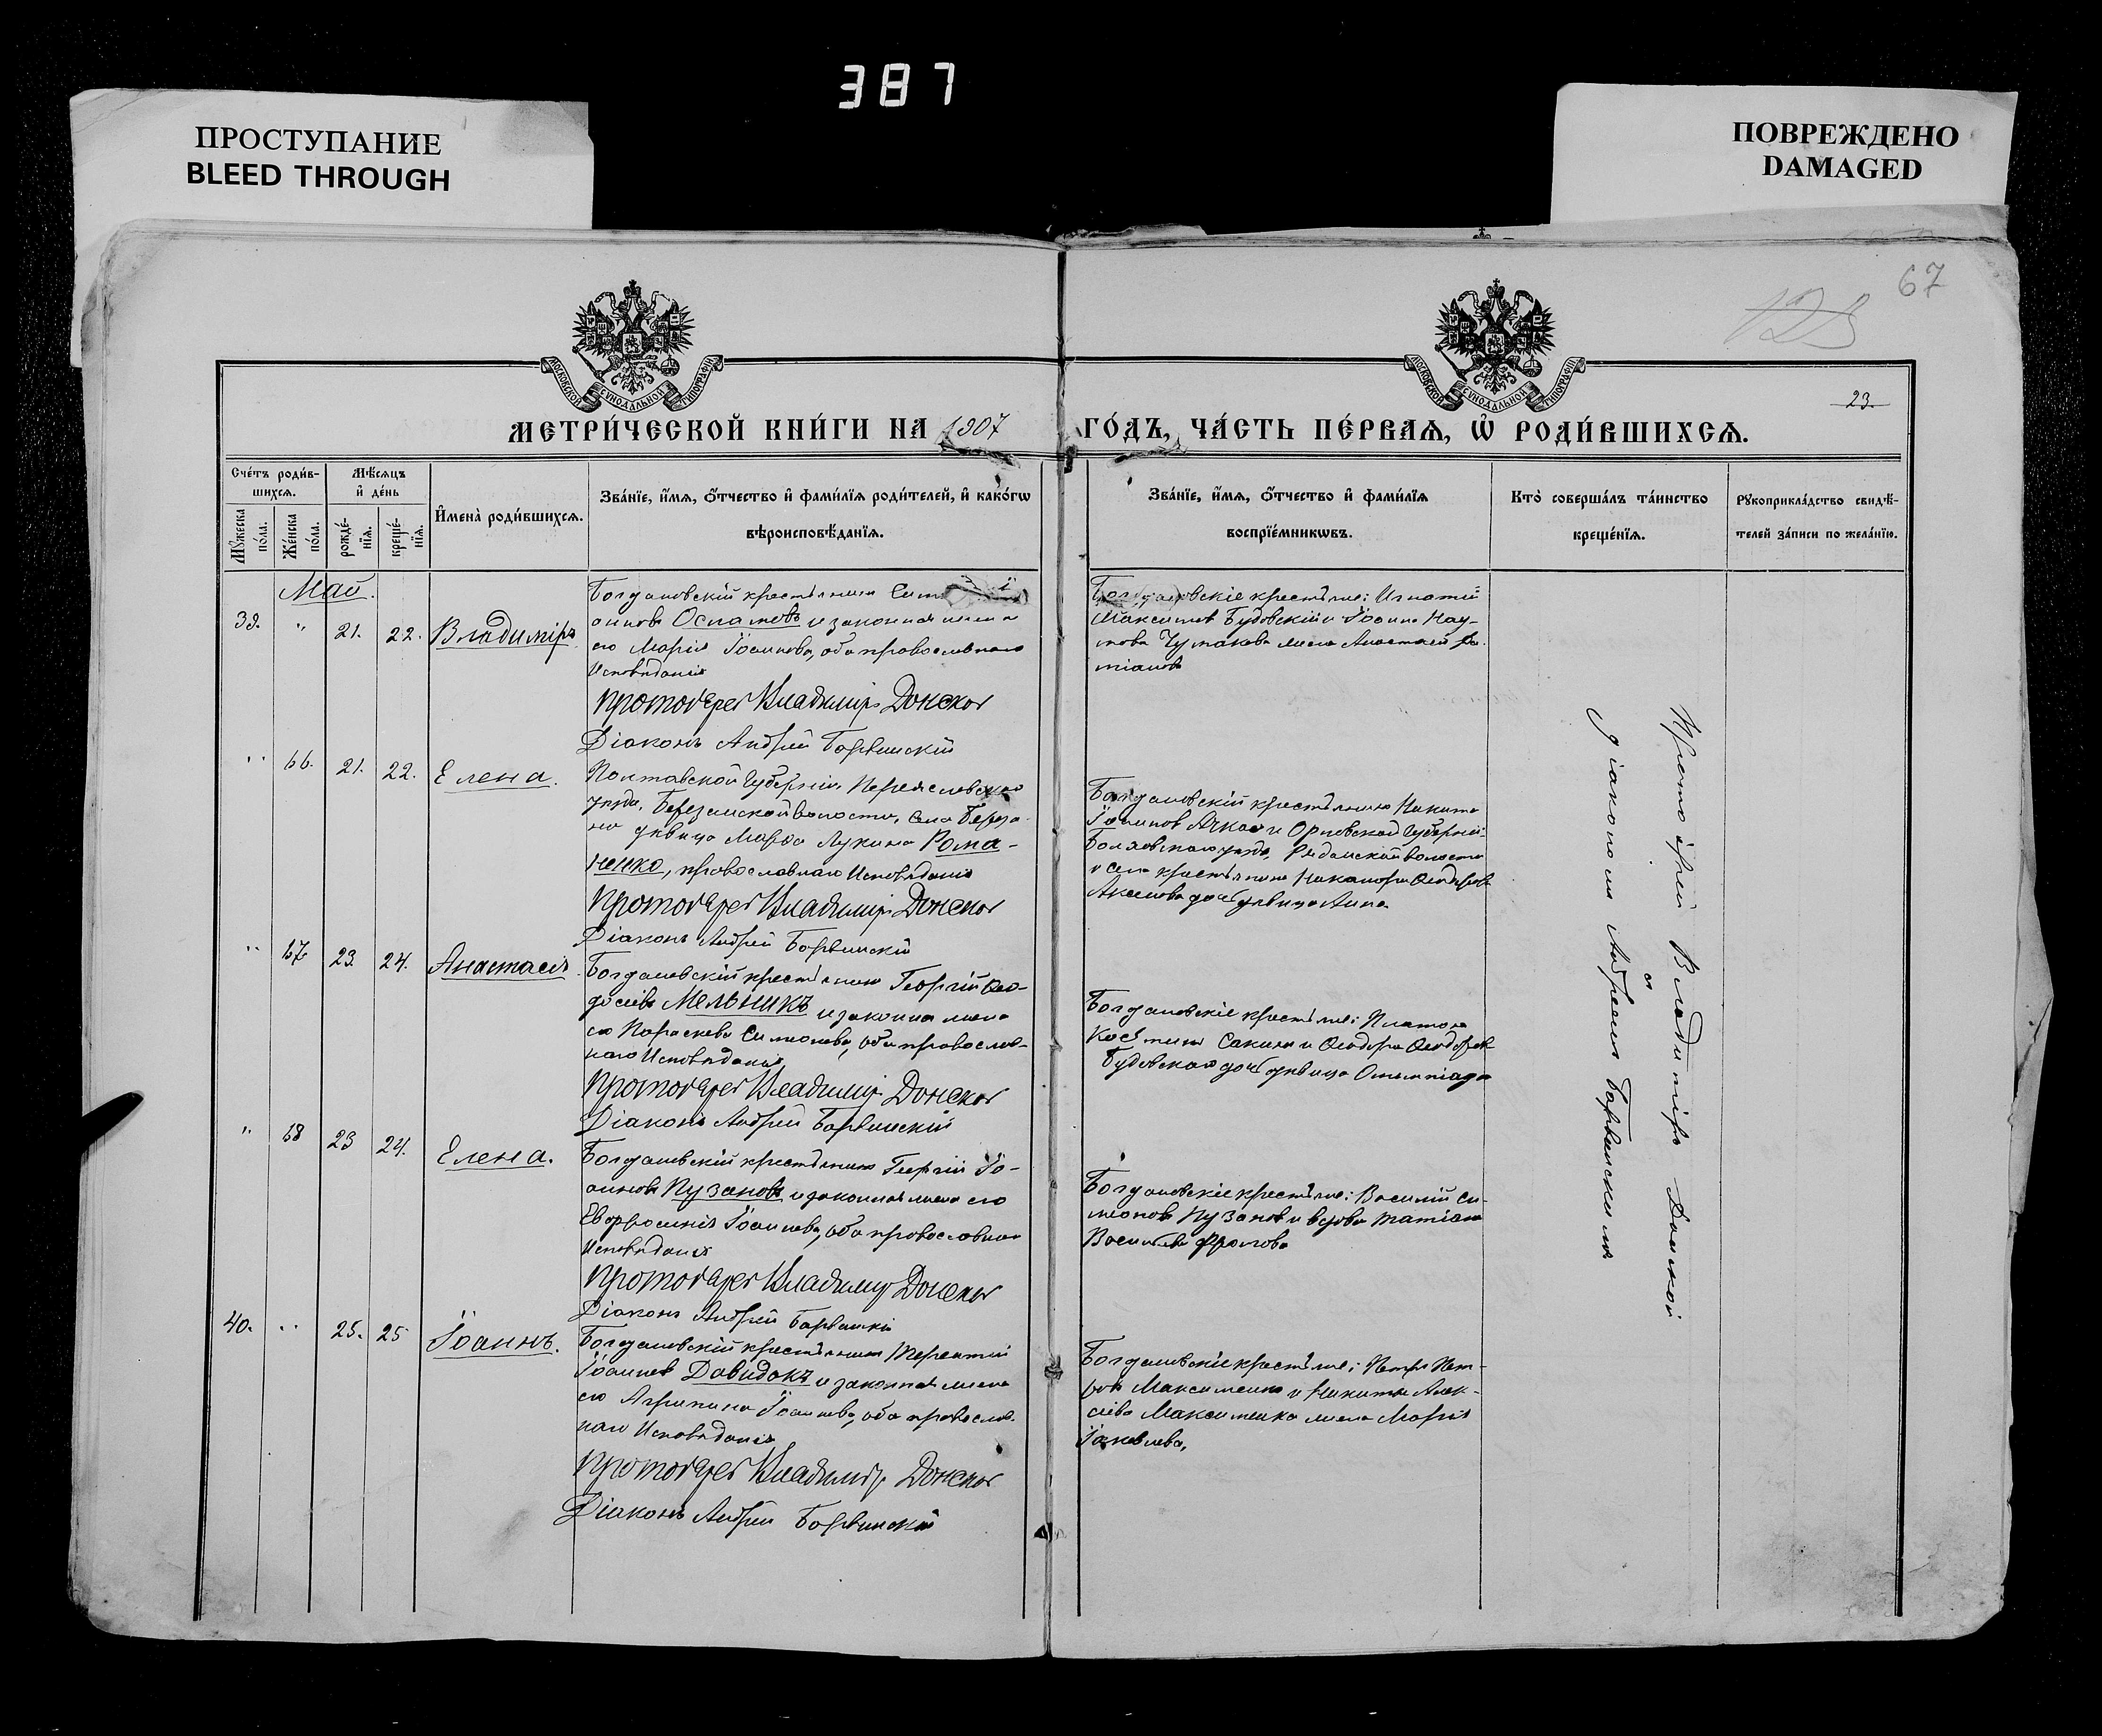 387
ПРОСТУПАНИЕ
BLEED THROUGH
ПОВРЕЖДЕНО
DAMAGED
67
123
23.
МОСКОВСКОЙ СУНОДАЛЬНОЙ ТИПОГРАФІИ
МОСКОВСКОЙ СУНОДАЛЬНОЙ ТИПОГРАФІИ
МЕТРИ́ЧЕСКОЙ КНИ́ГИ НА 1907 ГО́ДЪ, ЧА́СТЬ ПЕ́РВАЯ, Ѡ РОДИ́ВШИХСЯ.
Сче́тъ роди́в-
шихся.
Мѣ́сяцъ
и҆ де́нь
Мꙋжеска
по́ла.
Же́нска
по́ла.
рожде́-
нїя.
креще́-
нїя.
И҆мена̀ роди́вшихся.
Зва́нїе, и҆́мя, ѻ҆́тчество и҆ фами́лїя роди́телей, и҆ како́гѡ
вѣроисповѣ́данїя.
Зва́нїе, и҆́мя, ѻ҆́тчество и҆ фами́лїя
воспрїе́мникѡвъ.
Кто̀ соверша́лъ та́инство
креще́нїя.
Рꙋкоприкла́дство свидѣ́-
телей за́писи по жела́нїю.
Май.
39. " 21. 22. Владиміръ
Богдановскій крестьянинъ
Іоанновъ Осламовъ и законная жена
его Марія Іоаннова, оба православнаго
Исповѣданія
Протоіерей Владиміръ Донской
Діаконъ Андрей Барвинскій
Богдановскіе крестьяне: Игнатій
Максимовъ Будовскій и Іоанна Нау-
мова Чумакова жена Анастасія
" 66. 21. 22. Елена.
Полтавской Губерніи, Переяславскаго
уѣзда, Березанской волости, села Береза-
ни дѣвица Марѳа Лукина Рома-
ненко, православнаго Исповѣданія
Протоіерей Владиміръ Донской
Діаконъ Андрей Барвинскій
Богдановскій крестьянинъ Никита
Іоанновъ и Орловской Губерніи
Болховскаго уѣзда, волости
и села крестьянина Никанора Ѳеодорова
Аксенова дочь дѣвица Анна
" 67. 23. 24. Анастасія
Богдановскій крестьянинъ Георгій Ѳео-
досіевъ Мельникъ и законная жена
его Параскева Симеонова, оба православ-
наго Исповѣданія
Протоіерей Владиміръ Донской
Діаконъ Андрей Барвинскій
Богдановскіе крестьяне: Платонъ
Косьминъ Сакунъ и Ѳеодора Ѳеодорова
Будовскаго дочь дѣвица Олимпіада
" 68 23 24. Елена.
Богдановскій крестьянинъ Георгій Іо-
анновъ Пузановъ и законная жена его
Евфросинія Іоаннова, оба православнаго
Исповѣданія
Протоіерей Владиміръ Донской
Діаконъ Андрей Барвинскій
Богдановскіе крестьяне: Василій Си-
меоновъ Пузановъ и вдова Татіана
Васильева Фролова
40. " 25. 25 Іоаннъ.
Богдановскій крестьянинъ Терентій
Іоанновъ Давидокъ и законная жена
его Агрипина Іоаннова, оба православ-
наго Исповѣданія
Протоіерей Владиміръ Донской
Діаконъ Андрей Барвинскій
Богдановскіе крестьяне: Петръ Пет-
ровъ Максименко и Никиты Алек-
сіева Максименка жена Марія
Іаковлева.
Протоіерей Владиміръ Донской
съ
діакономъ Андреемъ Барвинскимъ